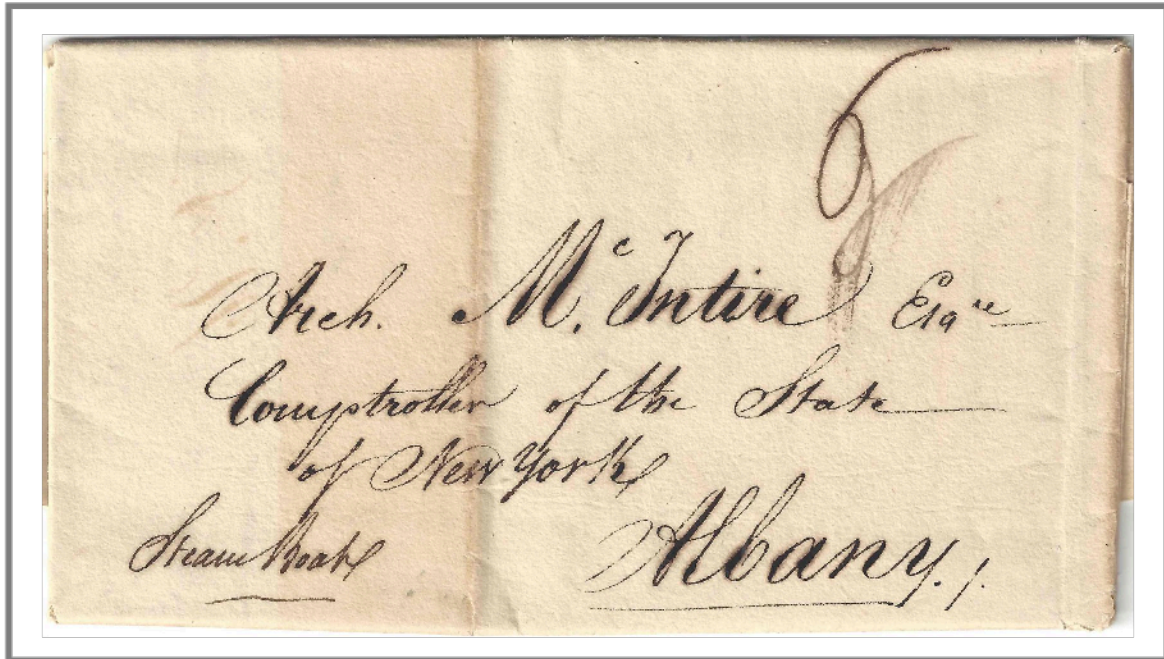 6
Arch. Mc. Intire Esqre
Comptroller of the State
of New York
Steam Boat
Albany.